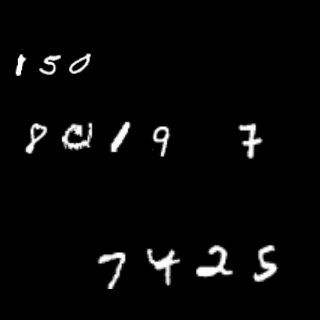 150
8019 7
7425